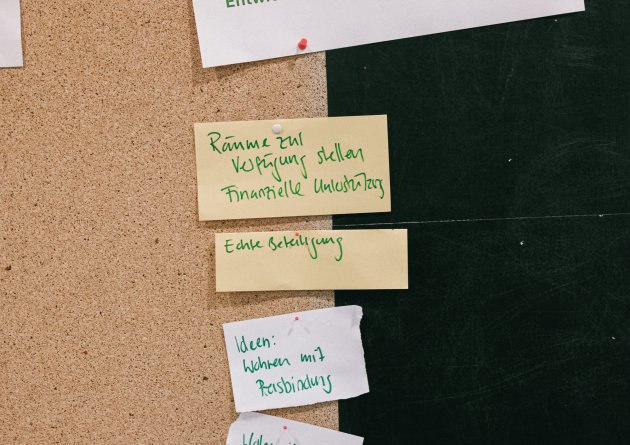 Räume zur
Verfügung stellen
Finanzielle Unterstützung
Echte Beteiligung
Ideen:
Wohnen mit
Preisbindung